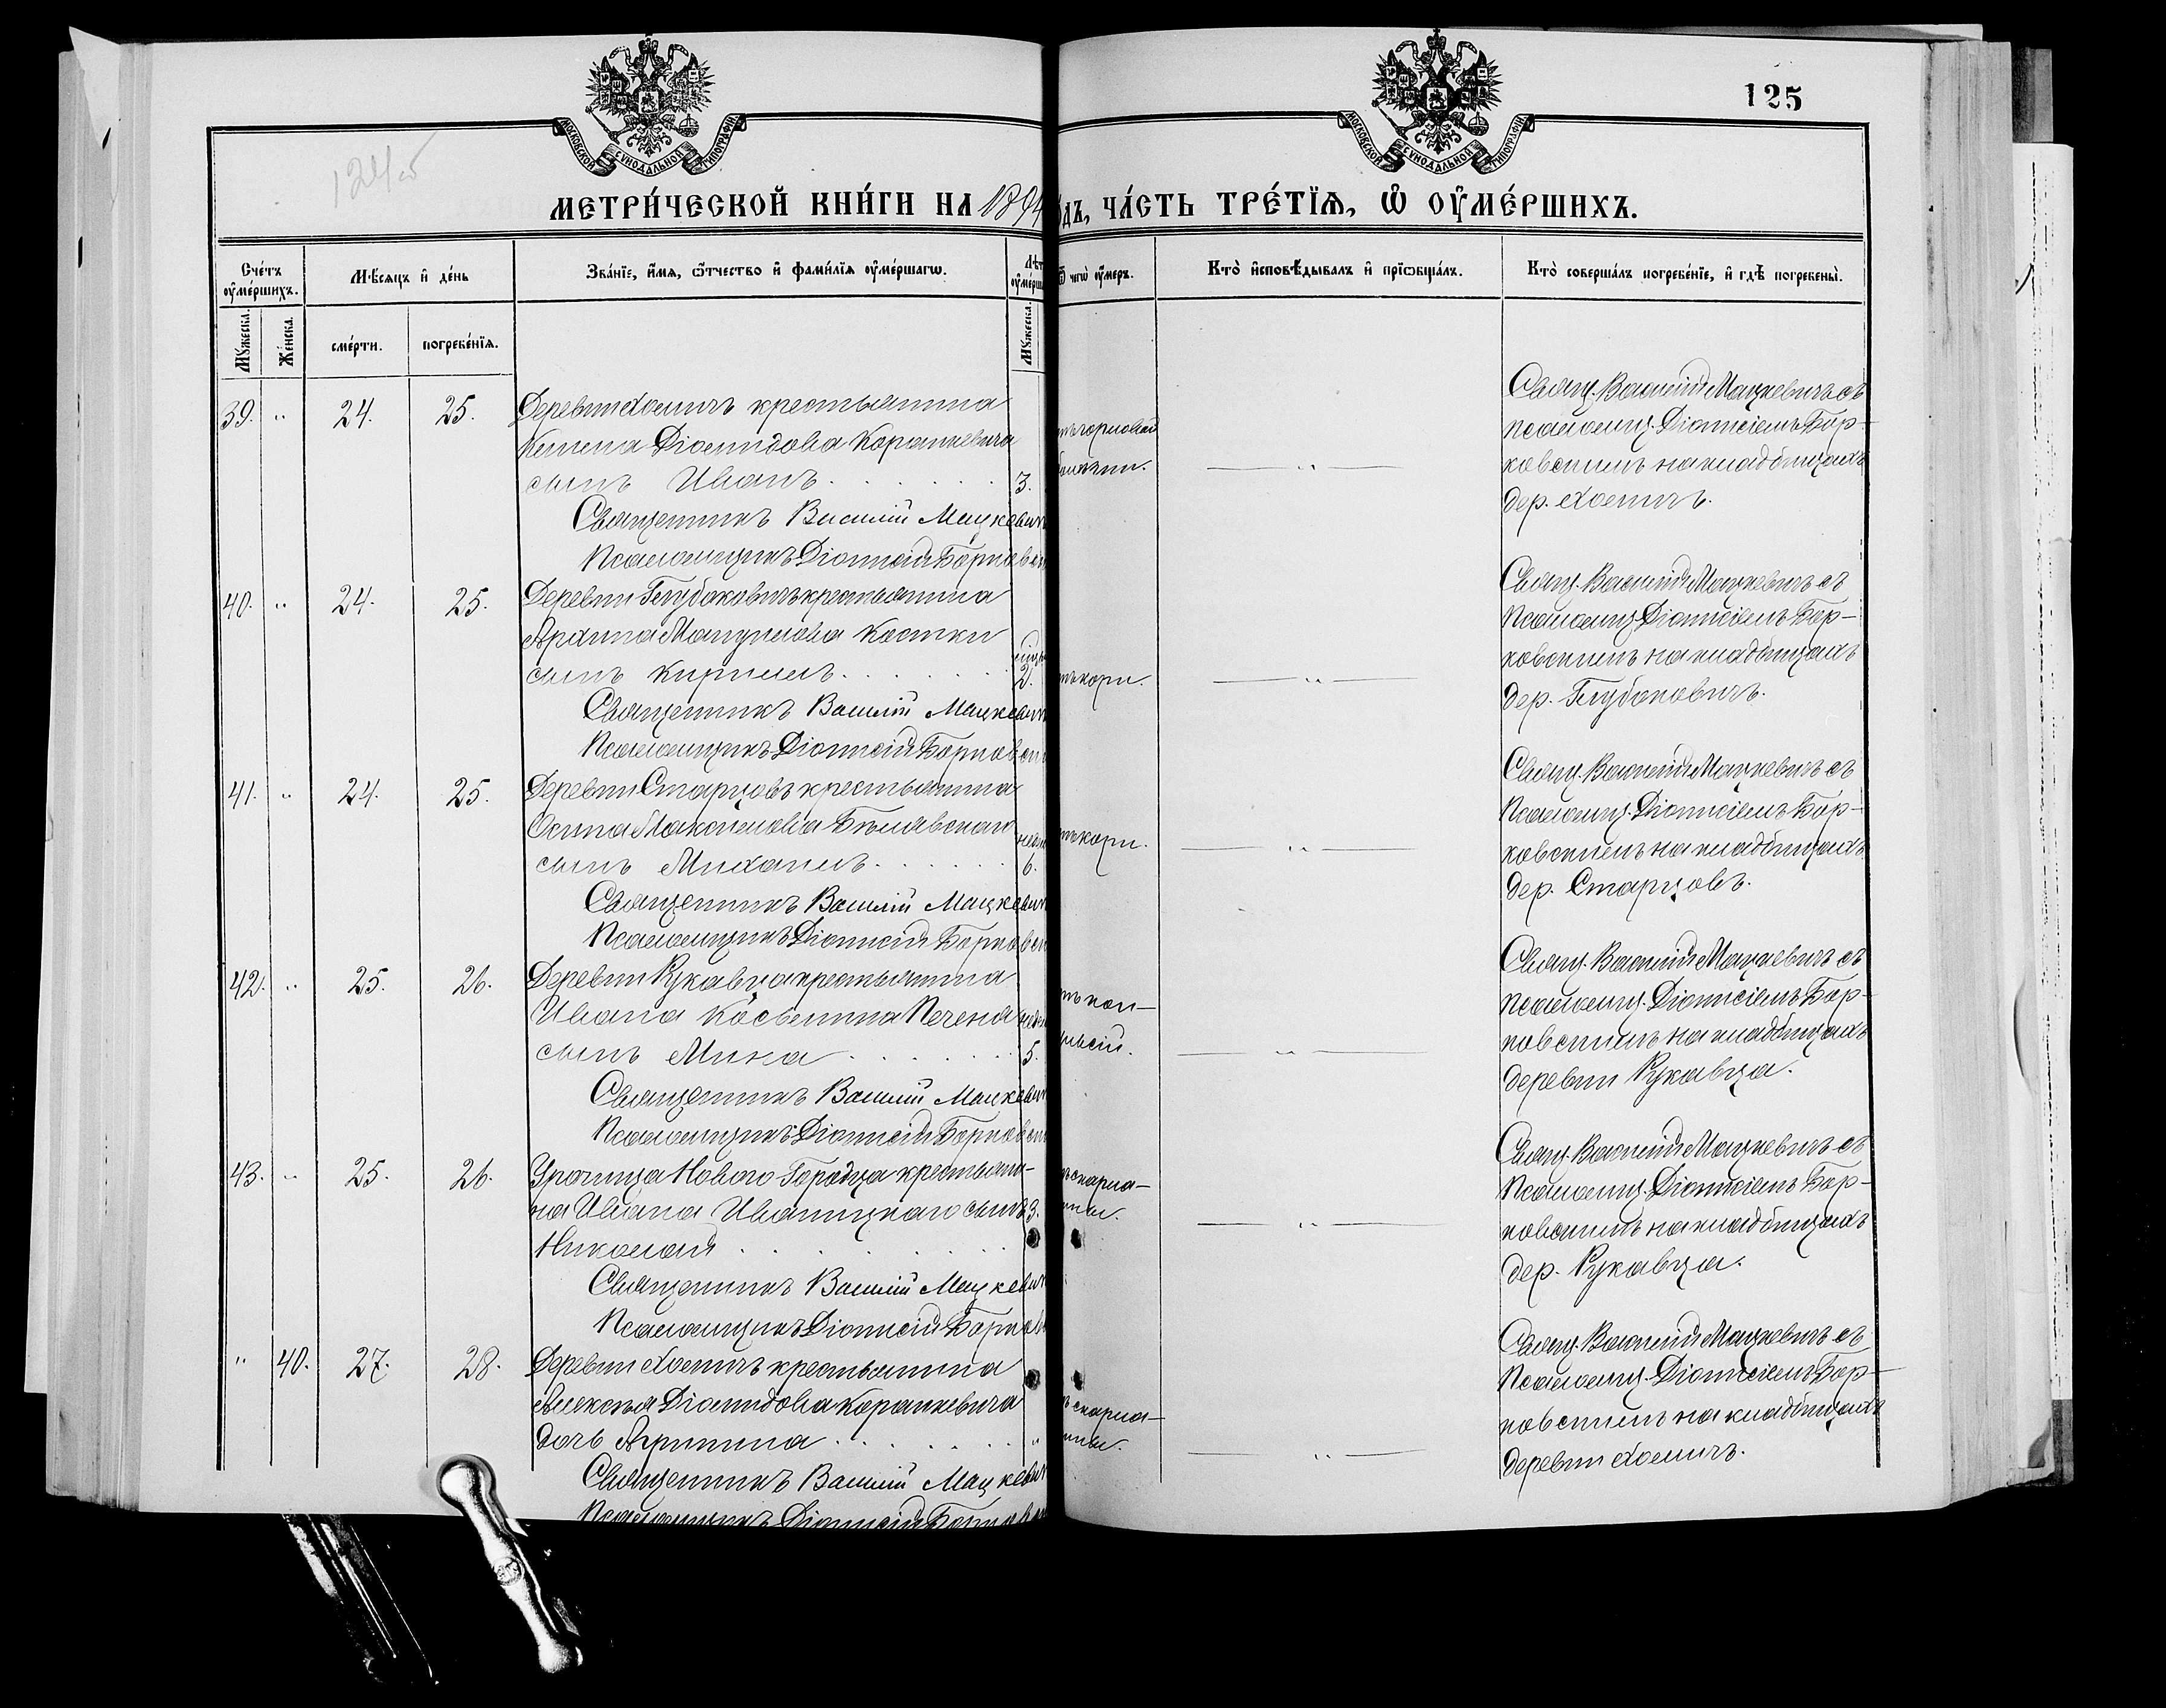 125
МОСКОВСКОЙ СУНОДАЛЬНОЙ ТИПОГРАФИИ
МОСКОВСКОЙ СУНОДАЛЬНОЙ ТИПОГРАФИИ
МЕТРИ́ЧЕСКОЙ КНИ́ГИ НА 1894
ДЪ, ЧА́СТЬ ТРЕ́ТЇѦ, Ѡ҆ ОУ҆МЕ́РШИХЪ.
Сче́тъ оу҆ме́ршихъ.
Мѣ́сяцъ и҆ де́нь
Зва́нїе, и҆́мя, ѻ҆́тчество и҆ фами́лїя оу҆ме́ршагѡ.
Лѣт
оу҆ме́рш
ѿ чегѡ̀ оу҆́меръ.
Кто̀ и҆сповѣ́дывалъ и҆ прїѡбща́лъ.
Кто̀ соверша́лъ погребе́нїе, и҆ гдѣ̀ погребены̀.
Му́жеска.
Же́нска.
сме́рти.
погребе́нїя.
Му́жеска.
39. " 24. 25. Деревни Хоеничъ крестьянина
Діомидова Коранкевича
сынъ Иванъ 3.
Священникъ Василій Мацкевич
Псаломщикъ Діонисій Борковск
Свящ. Василій Мацкевичъ съ
псаломщ. Діонисіемъ Бор-
ковскимъ на кладбищахъ
дер. Хоеничъ.
40. " 24. 25. Деревни Глубоковичъ крестьянина
Архипа Костки
сынъ Кириллъ 2.
Священникъ Василій Мацкевич
Псаломщикъ Діонисій Борковск
кори.
Свящ. Василій Мацкевичъ съ
Псаломщ. Діонисіемъ Бор-
ковскимъ на кладбищахъ
дер. Глубоковичъ.
41. " 24. 25. Деревни Старцовъ крестьянина
Осипа Максимова Бѣлявскаго
сынъ Михаилъ 6.
Священникъ Василій Мацкевич
Псаломщикъ Діонисій Борковск
кори.
Свящ. Василій Мацкевичъ съ
Псаломщ. Діонисіемъ Бор-
ковскимъ на кладбищахъ
дер. Старцовъ.
42. " 25. 26. Деревни Рукавца крестьянина
Ивана Косьмина Печеня
сынъ Мина 5.
Священникъ Василій Мацкевич
Псаломщикъ Діонисій Борковск
Свящ. Василій Мацкевичъ съ
псаломщ. Діонисіемъ Бор-
ковскимъ на кладбищахъ
деревни Рукавца.
43. " 25. 26. Урочища Новаго-Городца крестьяни-
на Ивана Иваницкаго сынъ 3.
Николай
Священникъ Василій Мацкевич
Псаломщикъ Діонисій Борков
скарла-
тины.
Свящ. Василій Мацкевичъ съ
Псаломщ. Діонисіемъ Бор-
ковскимъ на кладбищахъ
дер. Рукавца.
" 40. 27. 28. Деревни Хоеничъ крестьянина
Алексѣя Діомидова Коранкевича
дочь Агрипина "
Священникъ Василій Мацкевич
Псаломщикъ Діонисій Борковск
скарла-
тины.
Свящ. Василій Мацкевичъ съ
Псаломщ. Діонисіемъ Бор-
ковскимъ на кладбищахъ
деревни Хоеничъ.